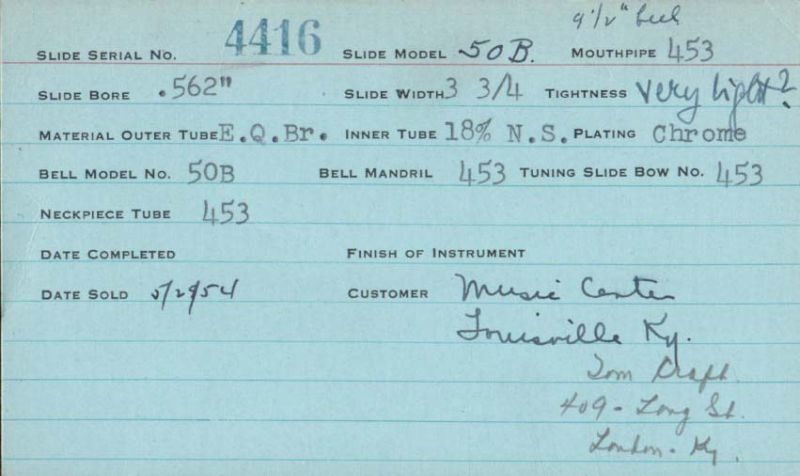 9 1/2" bell
SLIDE SERIAL NO. 4416 SLIDE MODEL 50B. MOUTHPIPE 453
SLIDE BORE .562" SLIDE WIDTH 3 3/4 TIGHTNESS very light?
MATERIAL OUTER TUBE E.Q.Br. INNER TUBE 18% N.S. PLATING Chrome
BELL MODEL NO. 50B BELL MANDRIL 453 TUNING SLIDE BOW NO. 453
NECKPIECE TUBE 453
DATE COMPLETED FINISH OF INSTRUMENT
DATE SOLD 5/29/54 CUSTOMER Music Center
Louisville Ky.
Tom
409 - Long St.
London - Ky.